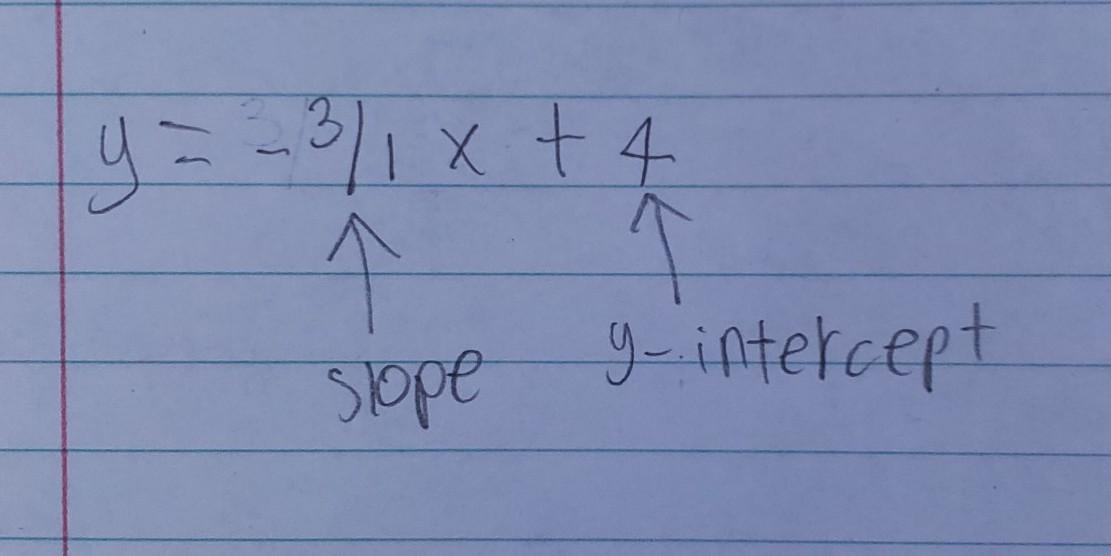 y = -3/1 x + 4
slope y-intercept